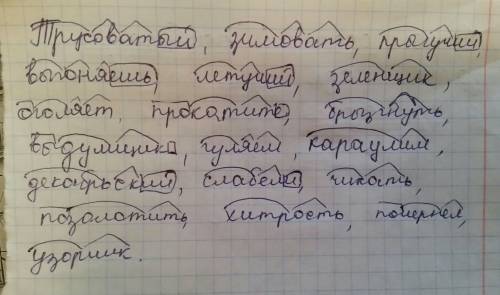 Трусоватый, зимовать, прыгучий,
выгоняешь, летучий, зеленщик,
оголяет, прокатите, брызгнуть,
выдумщика, гуляем, караулим,
декабрьский, слабели, чикать,
позолотить, хитрость, почернел,
узорщик.